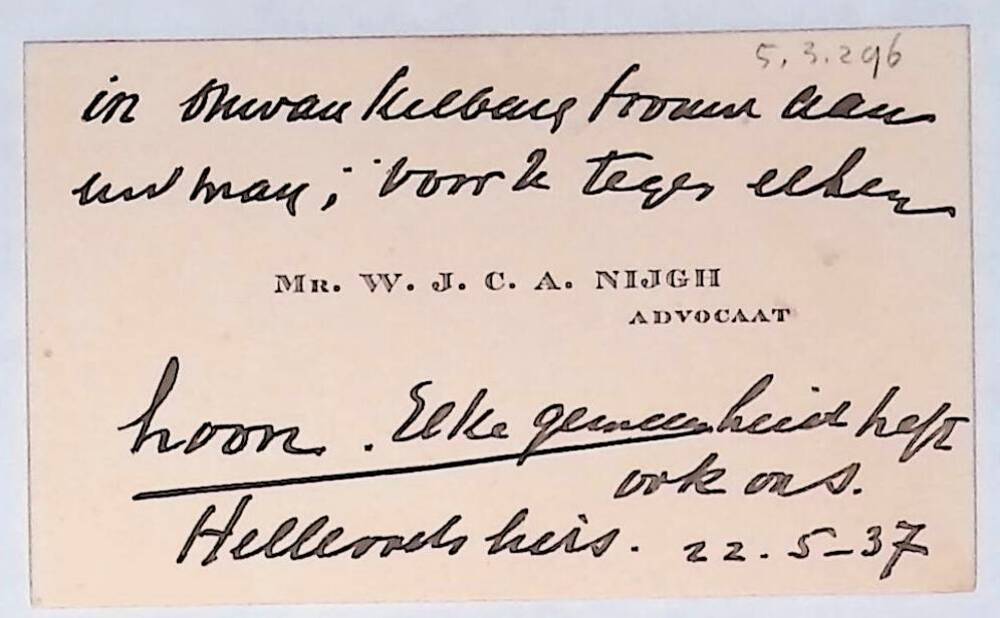 5.3.296
in onwankelbare trouw aan
uw man; voor & tegen elken
MR. W. J. C. A. NIJGH
ADVOCAAT
hoon. Elke gemeenheid heft
ook ons.
Hellevoetsluis. 22-5-37